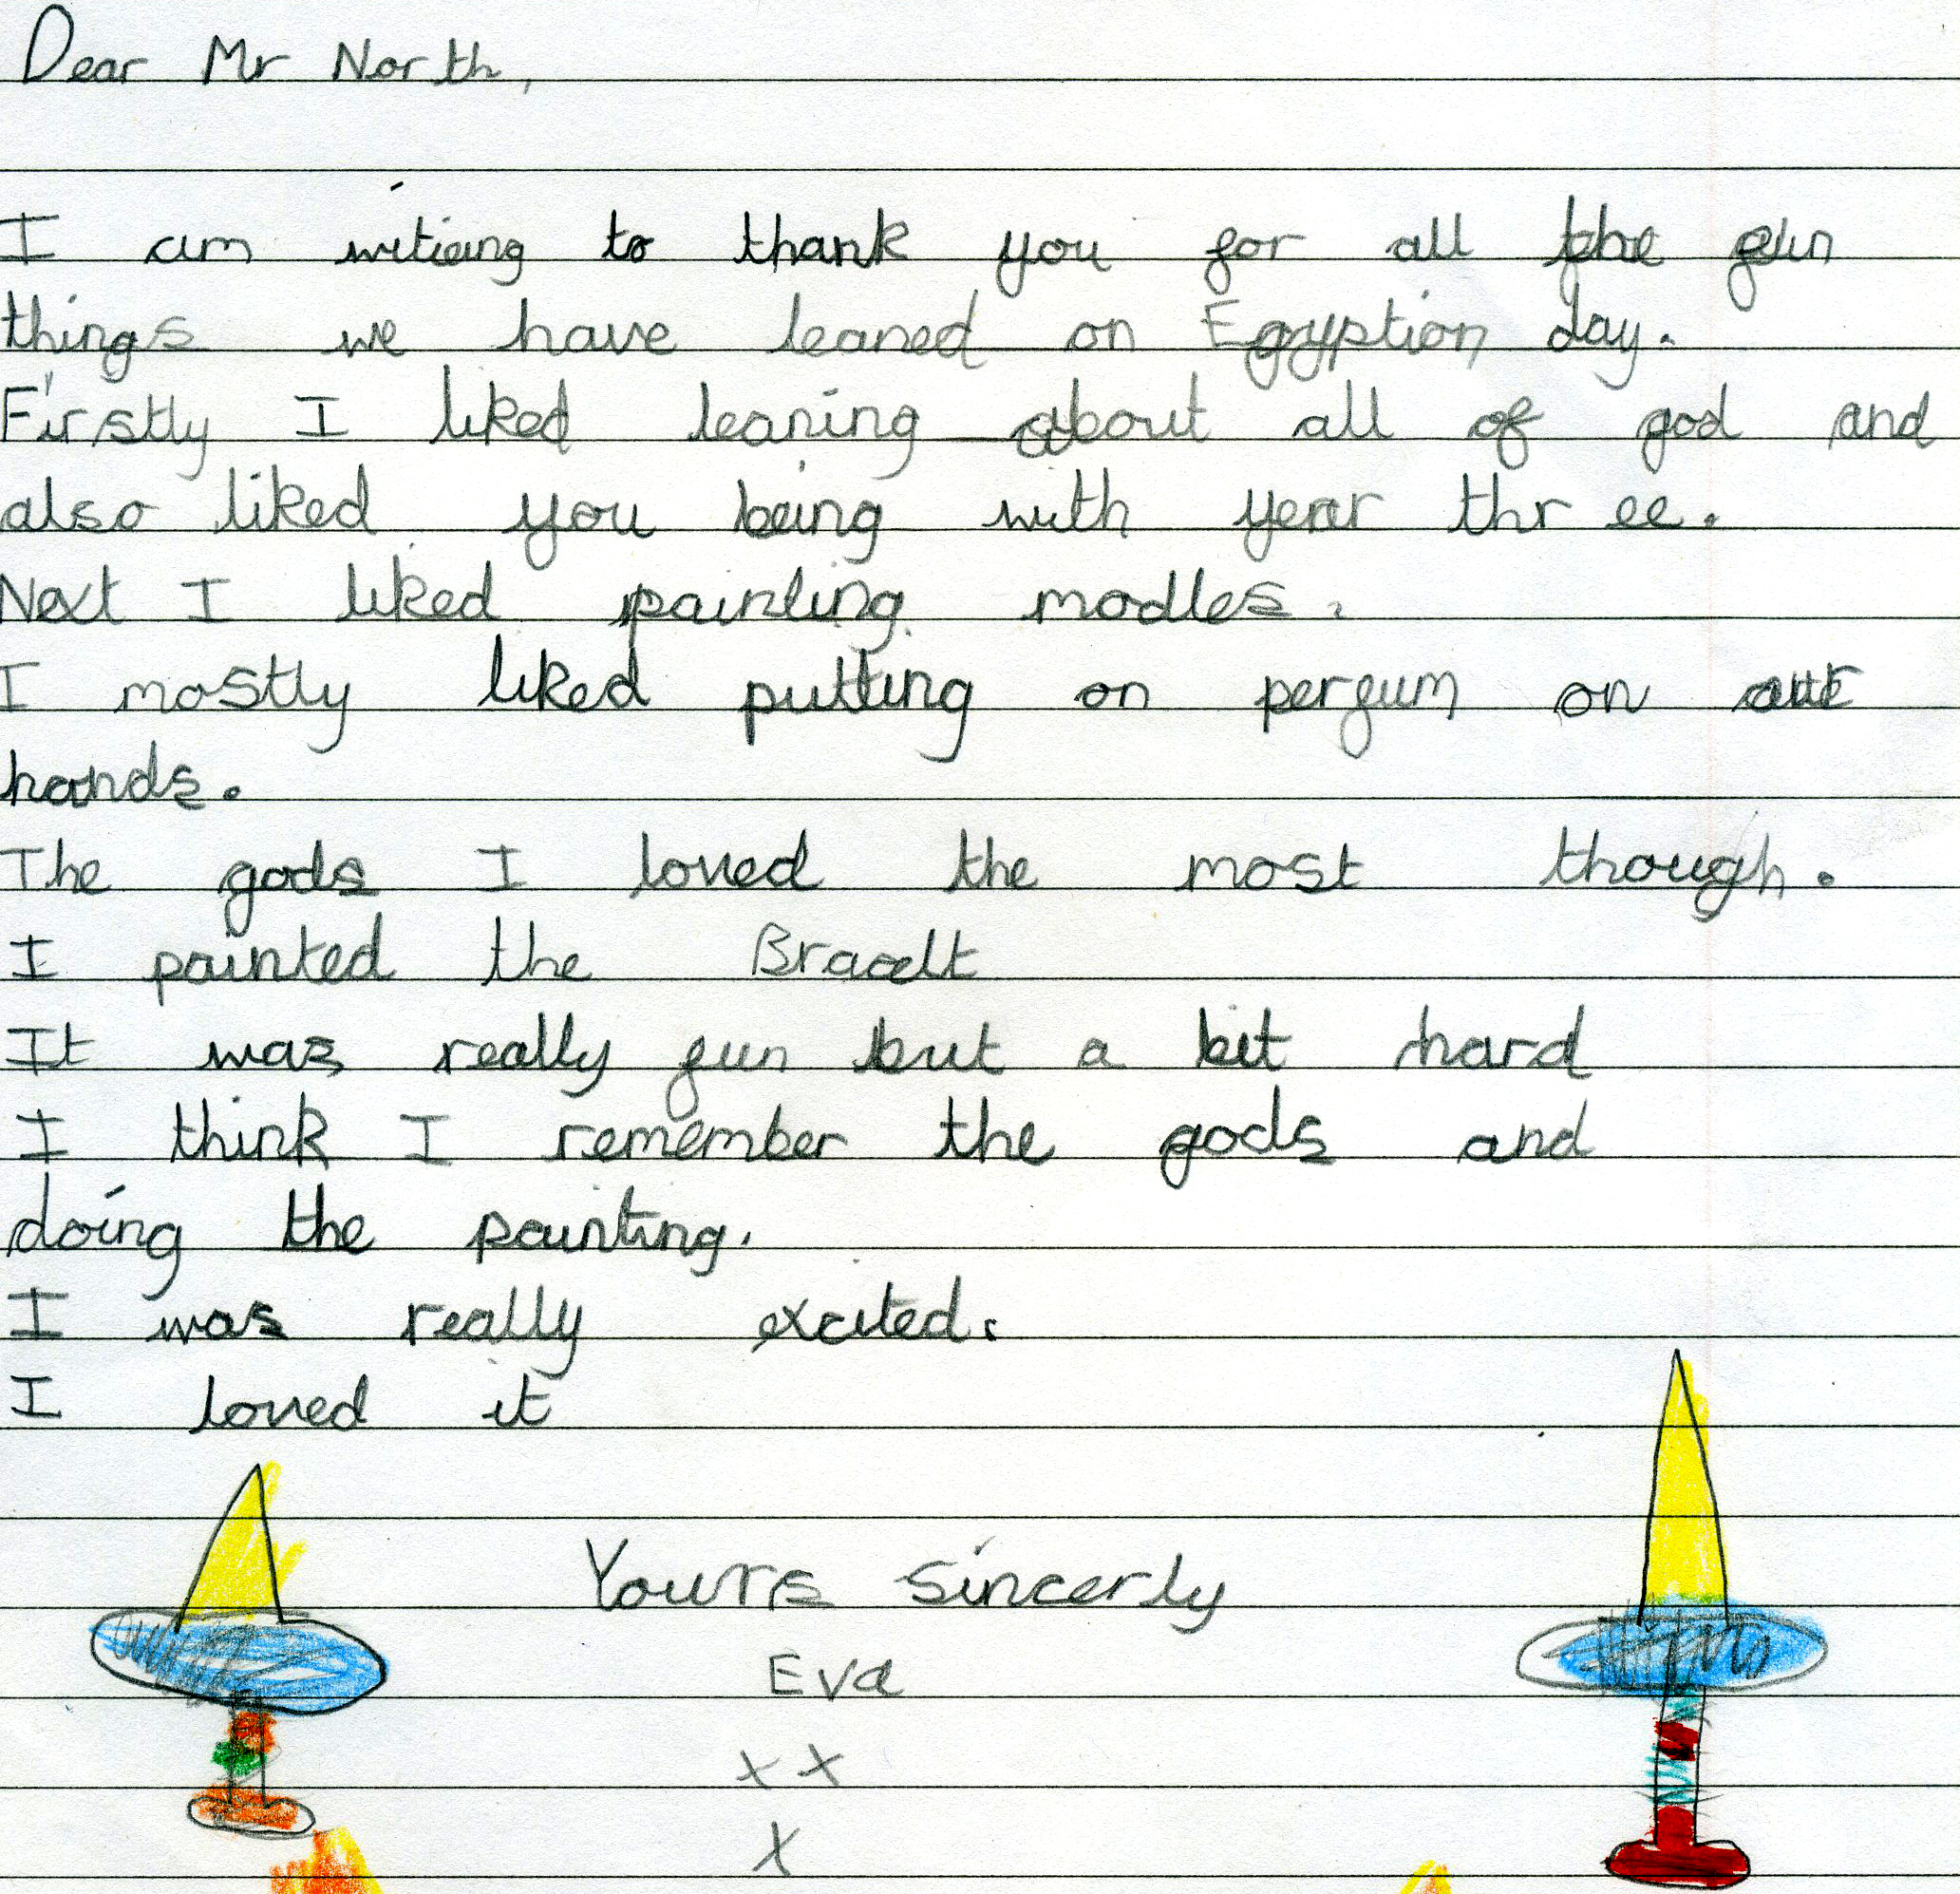 Dear Mr North,
I am writieing to thank you for all the fun
things we have leaned on Egyption day.
Firstly I liked leaning about all of god and
also liked you being with year thr ee.
Next I liked painting modles.
I mostly liked putting on perfum on our
hands.
The gods I loved the most though.
I painted the
It was really fun but a bit hard
I think I remember the gods and
doing the painting.
I was really excited.
I loved it
Yours sincerly
Eva
x x
x